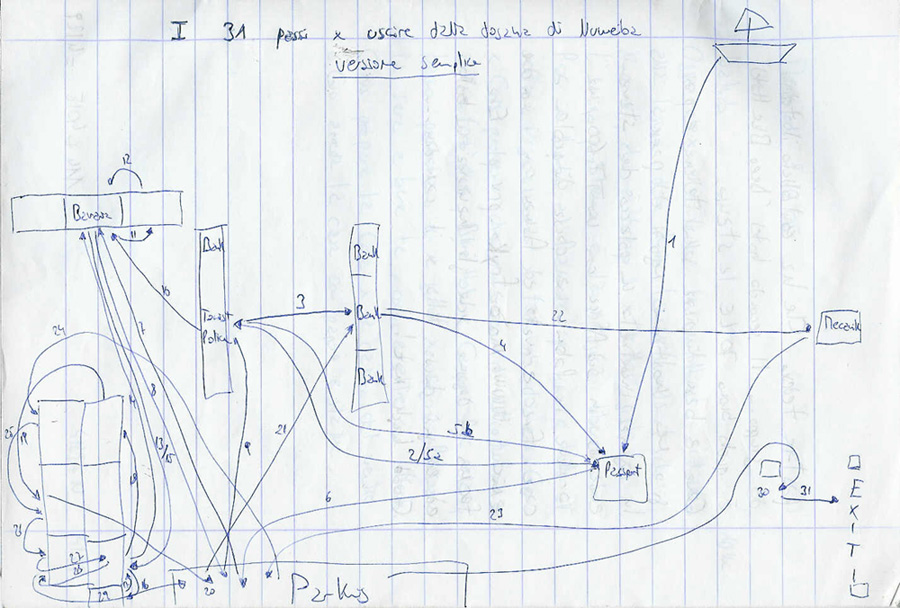 I 31 passi x uscire dalla dogana di Nuweiba
versione semplice
1
12
11
Bank
Tourist
Police
Bank
Bank
Bank
3
10
22
4
24
7
8
9
21
13/15
5b
2/5a
6
23
Passport
14
25
19
18
26
27
28
29
17
16
20
Parking
30
31
EXIT